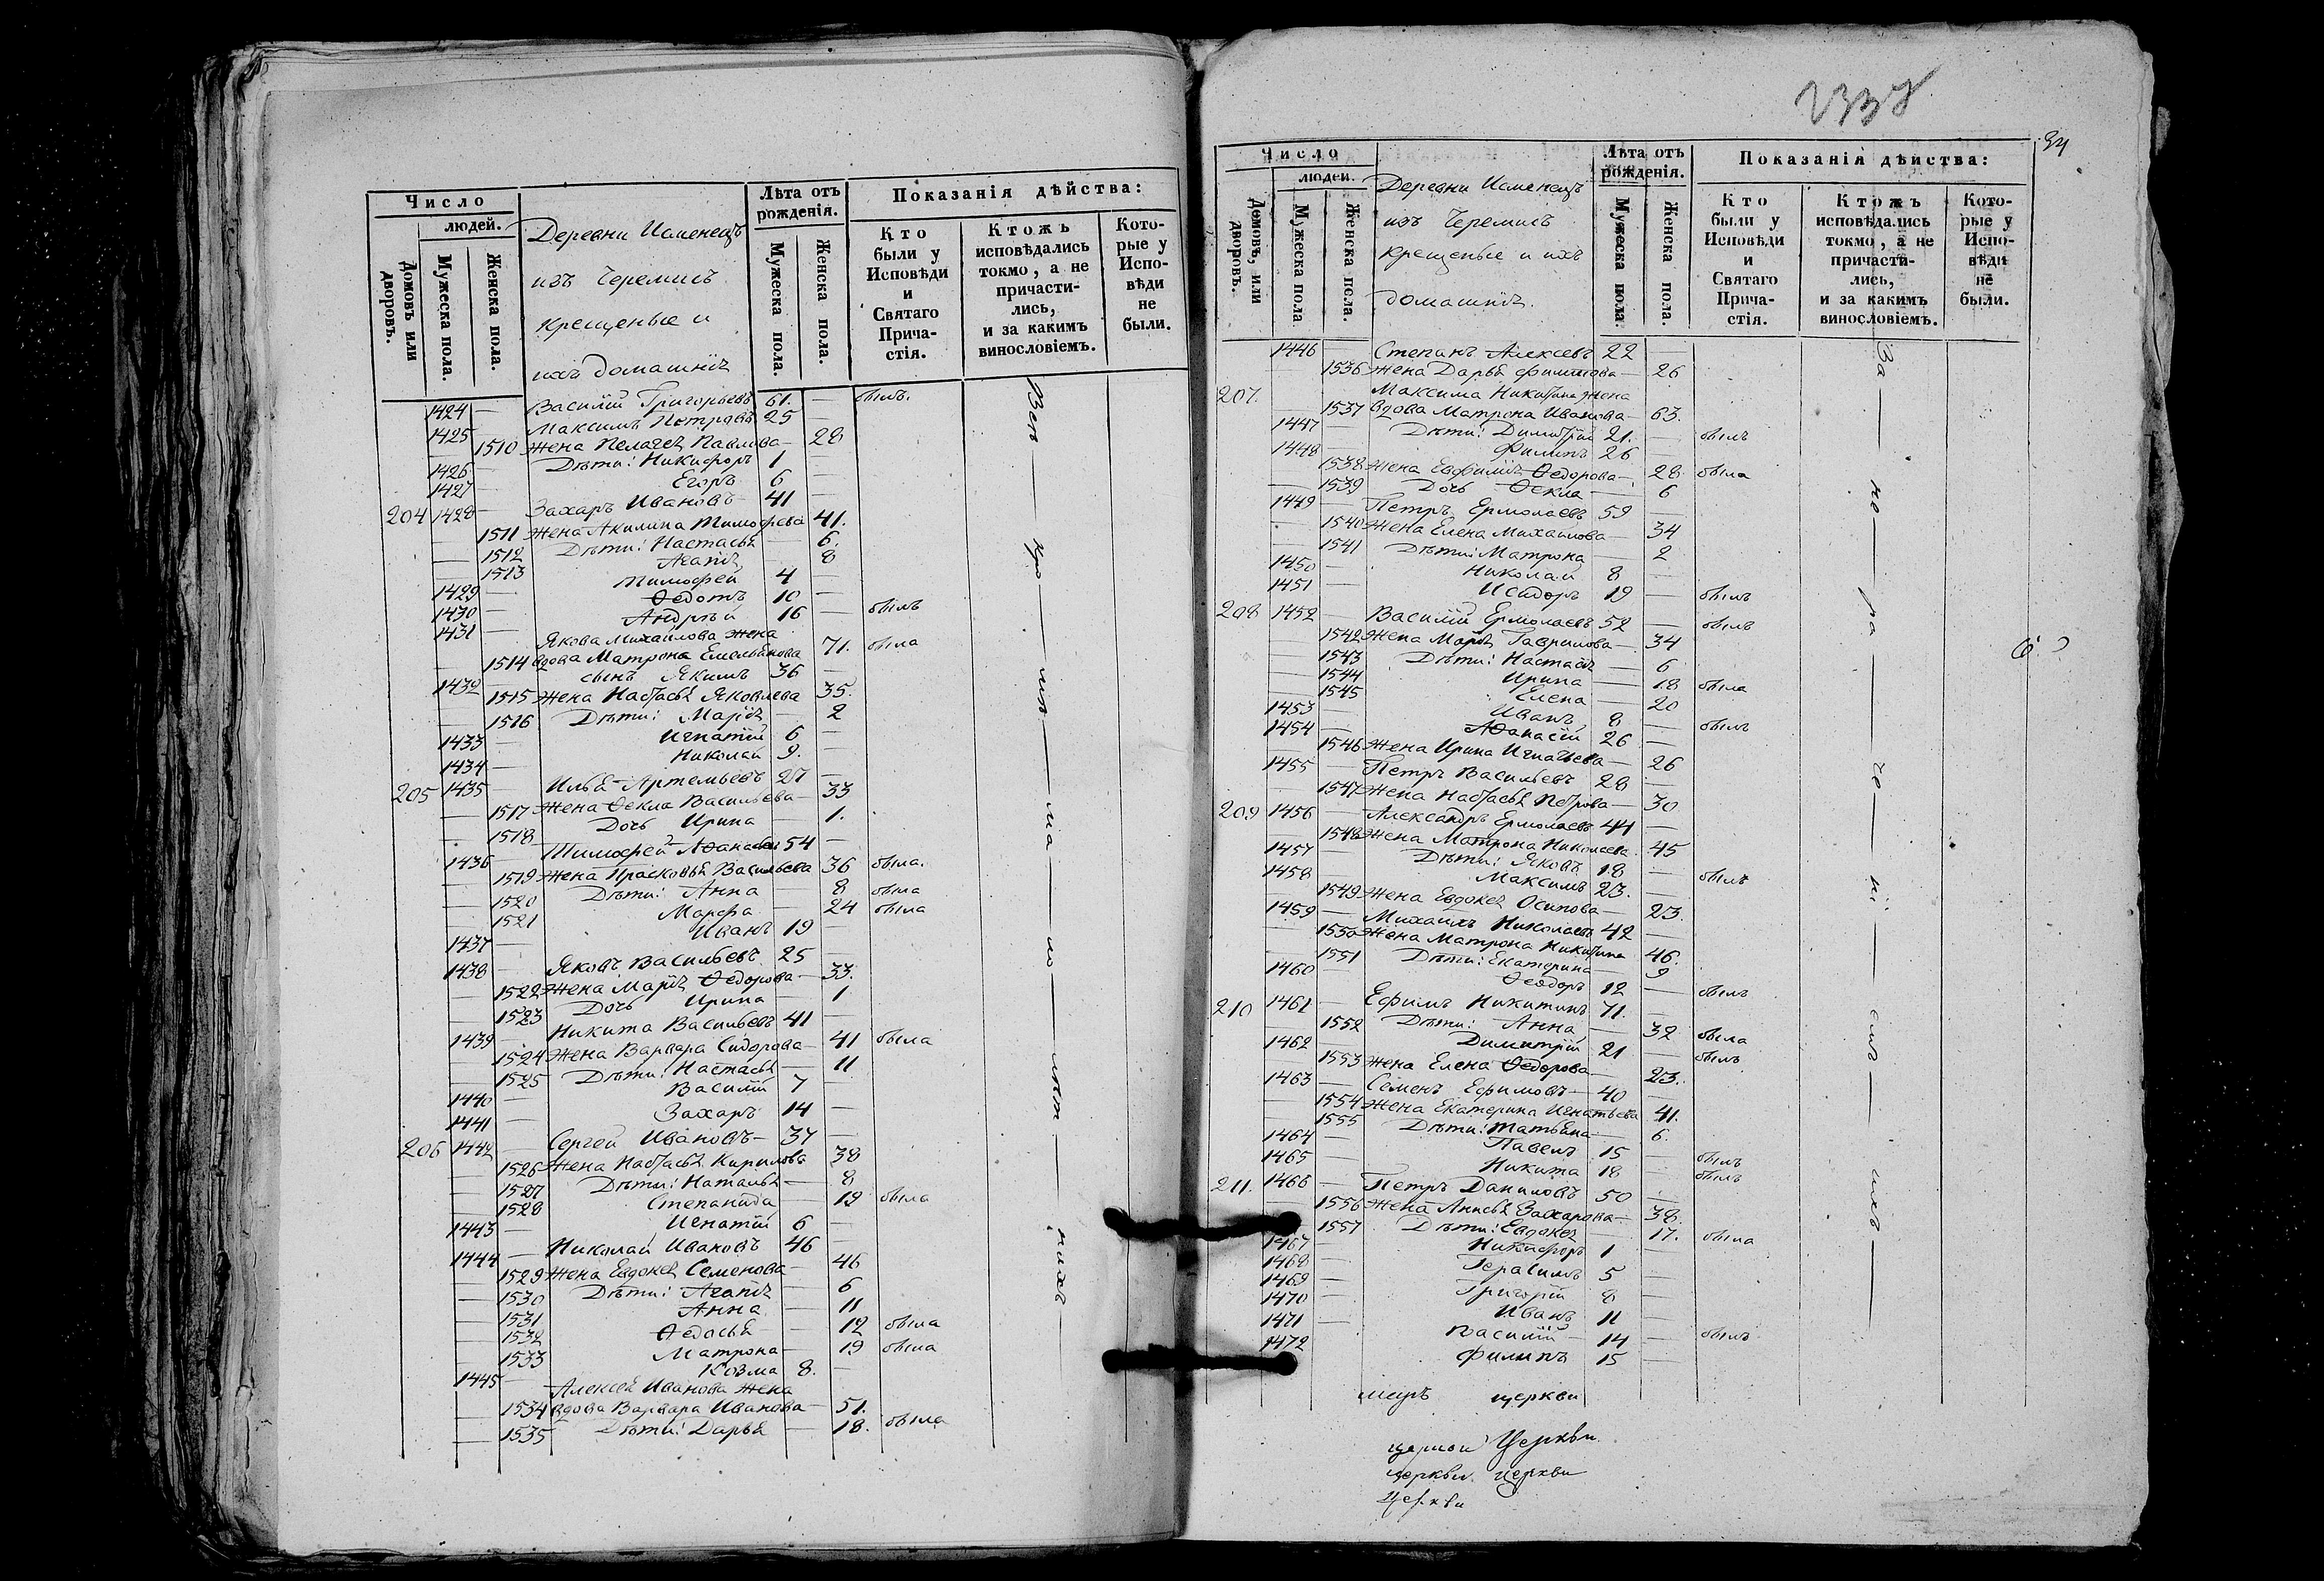 Число
людей.
Домовъ или дворовъ.
Мужеска пола.
Женска пола.
Деревни Исменецъ
изъ Черемисъ
крещеные и
ихъ домашнія
Лѣта отъ рожденія.
Мужеска пола.
Женска пола.
Показанія дѣйства:
Кто были у Исповѣди и Святаго Причастія.
Ктожъ исповѣдались токмо, а не причастились, и за какимъ винословіемъ.
Которые у Исповѣди не были.
1424 — Василій Григорьевъ 61. — былъ.
1425 — Максимъ Петровъ 25
— 1510 Жена Пелагея Павлова — 28
1426 — Дѣти: Никифоръ 1 —
1427 — Егоръ 6 —
204 1428 — Захаръ Ивановъ 41 —
— 1511 Жена Акилина Тимофеева 41.
— 1512 Дѣти: Настасья — 6.
— 1513 Агапія — 8
1429 — Тимофей 4 —
1430 — Ѳедотъ 10 —
1431 — Андрѣй 16 — былъ
Якова Михайлова жена
— 1514 вдова Матрона Емельянова 71. была
1432 — сынъ Якимъ 36 —
— 1515 Жена Настасья Яковлева 35.
— 1516 Дѣти: Марія — 2
1433 — Игнатій 6 —
1434 — Николай 9. —
205 1435 — Илья Артемьевъ 27 —
— 1517 Жена Ѳекла Васильева — 33
— 1518 Дочь Ирина — 1.
1436 — Тимофей Аѳанасьевъ 54 —
— 1519 Жена Прасковья Васильева 36 была.
— 1520 Дѣти: Анна — 8 была
— 1521 Марфа — 24 была
1437 — Иванъ 19 —
1438 — Яковъ Васильевъ 25 —
— 1522 Жена Марія Ѳедорова — 33.
— 1523 Дочь Ирина — 1
1439 — Никита Васильевъ 41 —
— 1524 Жена Варвара Сидорова — 41 была
— 1525 Дѣти: Настасья — 11
1440 — Василій 7 —
1441 — Захаръ 14 —
206 1442 — Сергей Ивановъ — 37 —
— 1526 Жена Настасья Кирилова 38
— 1527 Дѣти: Наталья — 8
— 1528 Степанида — 19 была
1443 — Игнатій 6 —
1444 — Николай Ивановъ 46
— 1529 Жена Евдокея Семенова — 46
— 1530 Дѣти: Агапія — 6
— 1531 Анна — 11
— 1532 Ѳедосья — 12 была
— 1533 Матрона — 19 была
1445 — Козма 8. —
Алексея Иванова жена
— 1534 вдова Варвара Иванова — 51.
— 1535 Дѣти: Дарья — 18. была
34
Число
людей.
Домовъ, или дворовъ.
Мужеска пола
Женска пола.
Деревни Исменецъ
изъ Черемисъ
крещеные и ихъ
домашнія.
Лѣта отъ рожденія.
Мужеска пола.
Женска пола.
Показанія дѣйства:
Кто были у Исповѣди и Святаго Причастія.
Ктожъ исповѣдались токмо, а не причастились, и за какимъ винословіемъ.
Которые у Исповѣди не были.
1446 — Степанъ Алексеевъ 22 —
— 1536 Жена Дарья Филипова — 26
207. Максима Никитина жена
— 1537 вдова Матрона Иванова — 63.
1447 — Дѣти: Димитрій 21. — былъ
1448 — Филипъ 26 —
— 1538 Жена Евфимія Ѳедорова — 28. была
— 1539 Дочь Ѳекла — 6
1449 — Петръ Ермолаевъ 59 —
— 1540 Жена Елена Михаилова — 34
— 1541 Дѣти: Матрона — 2
1450 — Николай 8 —
1451 — Исидоръ 19 — былъ
208 1452 Василій Ермолаевъ 52 — былъ
— 1542 Жена Марія Гаврилова — 34
— 1543 Дѣти: Настасія — 6
— 1544 Ирина — 18 была
— 1545 Елена — 20
1453 — Иванъ 8 —
1454 — Аѳанасій 26 — былъ
— 1546 Жена Ирина Игнатьева — 26
1455 — Петръ Васильевъ 28 —
— 1547 Жена Настасья Петрова — 30
209 1456 — Александръ Ермолаевъ 44 —
— 1548 Жена Матрона Николаева 45
1457 Дѣти: Яковъ 18 —
1458 Максимъ 23. — былъ
— 1549 Жена Евдокея Осипова — 23.
1459 — Михаилъ Николаевъ 42 —
— 1550 Жена Матрона Никитина 46.
— 1551 Дѣти: Екатерина — 9
1460 — Ѳеодоръ 12 — былъ
210 1461 — Ефимъ Никитинъ 71. —
— 1552 Дѣти: Анна — 32 была
1462 Димитрій 21 — былъ
— 1553 Жена Елена Ѳедорова — 23.
1463 — Семенъ Ефимовъ — 40 —
— 1554 Жена Екатерина Игнатьева 41.
— 1555 Дѣти: Татьяна — 6.
1464 — Павелъ 15 — былъ
1465 — Никита 18 — былъ
211. 1466 — Петръ Даниловъ 50 —
— 1556 Жена Анисья Захарова — 38.
— 1557 Дѣти: Евдокея — 17. была
1467 — Никифоръ 1 —
1468 — Герасимъ 5 —
1469 — Григорій 8 —
1470 — Иванъ 11 —
1471 — Василій 14 — былъ
1472 Филипъ 15 —
церкви
Церкви
церкви. церкви
Церкви